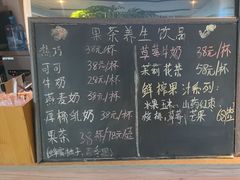 果茶养生饮品
热巧 38元/杯
可可 38元/杯
牛奶 28元/杯
燕麦奶 38元/杯
厚椰乳奶 38元/杯
果茶 38/杯/78元/壶
草莓牛奶 38元/杯
茉莉花茶 58元/杯
鲜榨果汁系列:
水果玉米、山药红枣
核桃、草莓、芒果